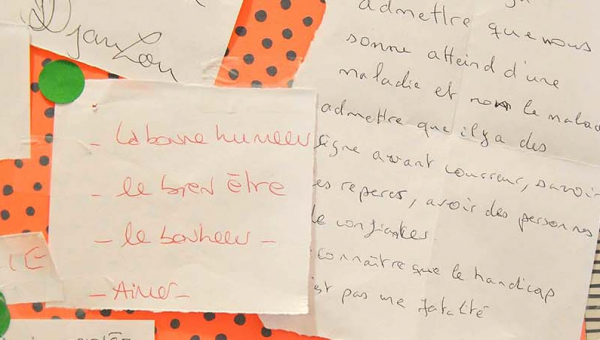 DjanLou
- la bonne humeur
- le bien être
- le bonheur -
- Aimer -
IE
admettre que nous
somme atteind d'une
maladie et non le malad
admettre que il y a des
signe avant coureur, savoir
es reperes, avoir des personnes
de confiantes
connaître que le handicap
est pas une fatalité